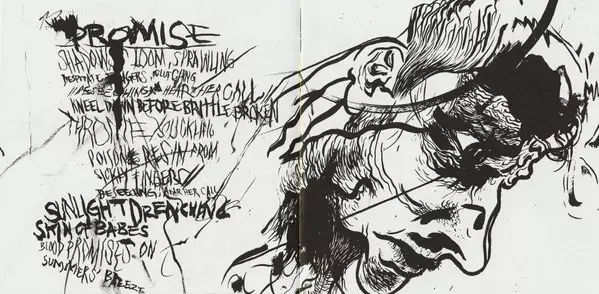 PROMISE
SHADOWS LOOM, SPRAWLING
DESPERATE FINGERS,
HEAR HER CALL
KNEEL DOWN BEFORE BRITTLE BROKEN
THRONE SUCKLING
POISONED RESIN FROM
FINGERS
BESEECHING, HEAR HER CALL
SUNLIGHT DRENCHING
SKIN OF BABES
BLOOD PROMISES ON
SUMMERS' BREEZE